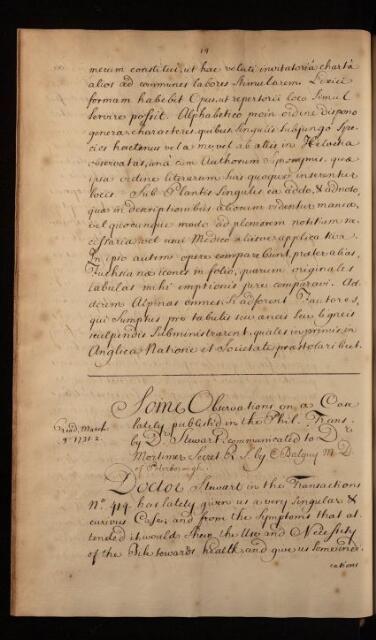 19
merum constitui, ut hac veluti invitatoria charta
alios ad communes labores stimularem. Lexici
formam habebit Opus, ut repertorii loco simul
servire possit. Alphabetico ordine dispono
genera characteres, quibus singulis subjungo Spe-
cies hactenus vel a me vel ab aliis in Helvetia
observatas, unà cum Authorum Synonymis, quæ
ipsa ordine literarum suis quoque inserentur
locis. Sub Plantis singulis ea addo, & adnoto,
quæ in descriptionibus aliorum videntur manca,
vel quocunque modo ad pleniorem notitiam ne-
cessaria, vel usui Medico aliisve applicativa.
In ipso autem opere comparebunt, præter alias,
Fuchsianæ icones in folio, quarum originales
tabulas mihi emptionis jure comparavi. Ad-
derem Alpinas omnes, si adforent Fautores,
qui sumptus pro tabulis seu æneis seu ligneis
sculpendis subministrarent, quales in primis in
Anglica Natione et Societate præstolari licet.
Some Observations on a Case
lately published in the Phil. Trans.
by Dr Stewart communicated to Dr
Mortimer Secret R. S. by C Balguy M D
of Peterborough.
Read March
1731-2.
Doctor Stewart in the Transactions
No. 414 has lately given us a very singular &
curious Case, and from the Symptoms that at-
tended it, would shew the Use and Necessity
of the Bile towards health and give us some
cations